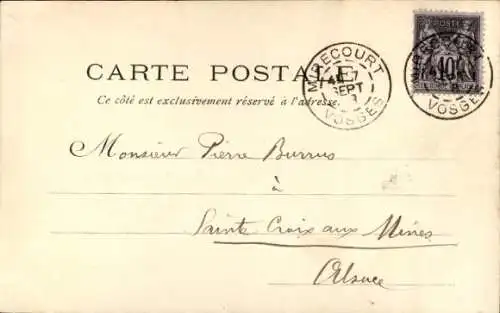 CARTE POSTALE
Ce côté est exclusivement réservé à l'adresse.
MIRECOURT
7
SEPT
VOSGES
POSTE
10
MIRECOURT
VOSGES
Monsieur Pierre Burrus
à
Sainte Croix aux Mines
Alsace